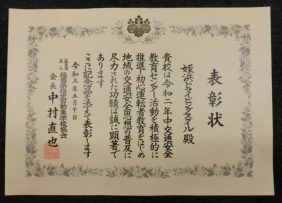 表彰状
姪浜ドライビングスクール殿
貴校は令和二年中交通安全
教育センター活動を積極的に
推進し初心運転者教育をはじめ
地域の交通安全思想の普及に
尽力された功績は誠に顕著で
あります
ここに記念品を添えて表彰します
令和三年五月十日
福岡県指定自動車学校協会
会長 中村直也